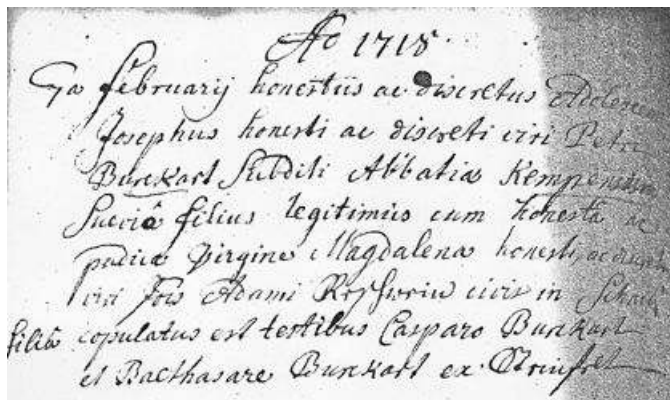 Ao 1718.
7a februarij honestus ac discretus Adolescens
Josephus honesti ac discreti viri Petri
Burckart Subditi Abbatiæ Kempensis
Sueviâ filius legitimus cum honestâ ac
pudica Virgine Magdalena honesti, ac
viri Jois Adami civis in
filiâ copulatus est testibus Casparo Burckart
et Balthasare Burckart ex